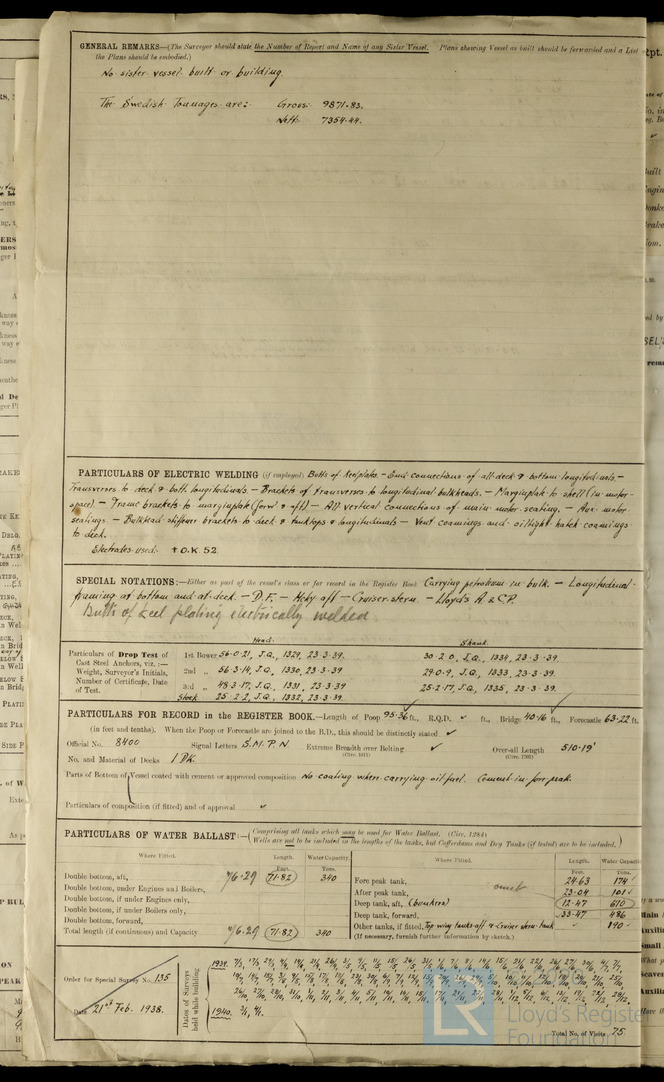 GENERAL REMARKS—(The Surveyor should state the Number of Report and Name of any Sister Vessel. Plans showing Vessel as built should be forwarded and a List
the Plans should be embodied.)
No sister vessel built or building
The Swedish Tonnages are: Gross: 9871.83.
Nett: 7354.44.
PARTICULARS OF ELECTRIC WELDING (if employed) Butts of keelplates. — End connections of all deck & bottom longitudinals. —
Transverses to deck & bott. longitudinals. — Brackets of transverses to longitudinal bulkheads. — Marginplate to shell (in motor
space). — Frame brackets to marginplate (forw & aft) — All vertical connections of main motor seating. — Aux. motor
seatings. — Bulkhead stiffener brackets to deck & tanktops & longitudinals — Vent coamings and oiltight hatch coamings
to deck.
Electrodes used: O.K. 52.
SPECIAL NOTATIONS:—Either as part of the vessel's class or for record in the Register Book Carrying petroleum in bulk. — Longitudinal
framing at bottom and at deck. — D.F. — Mchy aft — Cruiser stern — Lloyd's A. & C.P.
Butts of keel plating electrically welded
Head. Shank.
Particulars of Drop Test of
Cast Steel Anchors, viz. :—
Weight, Surveyor's Initials,
Number of Certificate, Date
of Test.
1st Bower 56-0-21, J.Q., 1329, 23-3-39. 30-2-0, J.Q., 1334, 23-3-39.
2nd „ 56-3-14, J.Q., 1330, 23-3-39 29-0-9, J.Q., 1333, 23-3-39.
3rd „ 48-3-17, J.Q., 1331, 23-3-39 25-2-17, J.Q., 1335, 23-3-39.
Stock 25-2-2, J.Q., 1332, 23-3-39.
PARTICULARS FOR RECORD in the REGISTER BOOK.—Length of Poop 95.36 ft., R.Q.D. ft., Bridge 40.16 ft., Forecastle 63.22 ft.
(in feet and tenths). When the Poop or Forecastle are joined to the B.D., this should be distinctly stated
Official No. 8400 Signal Letters S.M.P.N Extreme Breadth over Belting Over-all Length 510.19'
(Circ. 1611) (Circ. 1703)
No. and Material of Decks 1 Dk
Parts of Bottom of Vessel coated with cement or approved composition No coating when carrying oil fuel. Cement in fore peak.
Particulars of composition (if fitted) and of approval
PARTICULARS OF WATER BALLAST:—(Comprising all tanks which may be used for Water Ballast. (Circ. 1284)
Wells are not to be included in the lengths of the tanks, but Cofferdams and Dry Tanks (if tested) are to be included.)
Where Fitted. Length. Water Capacity. Where Fitted. Length. Water Capacity
Feet. Tons. Feet. Tons.
Double bottom, aft, 76.29 71.82 340
Double bottom, under Engines and Boilers,
Double bottom, if under Engines only,
Double bottom, if under Boilers only,
Double bottom, forward,
Total length (if continuous) and Capacity 76.29 71.82 340
Fore peak tank, 24.63 174
After peak tank, omit 23.04 101
Deep tank, aft, (bunkers) 12.47 610
Deep tank, forward, 33.47 486
Other tanks, if fitted, Top wing tanks aft & Cruiser stern tank 190
(If necessary, furnish further information by sketch.)
Order for Special Survey No. 135
Date 21st Feb. 1938.
Dates of Surveys
held while building
1939.
1940.
Total No. of Visits 75
LR
Lloyd's Register
Foundation